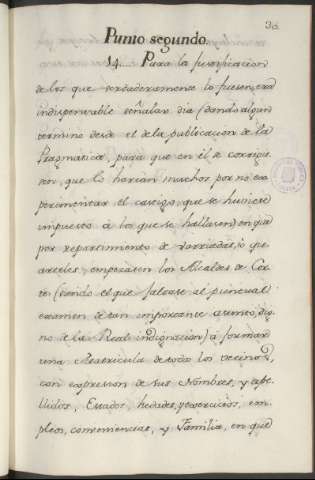 30.
Punto segundo.
14.... Para la justificacion
de los que verdaderamente lo fuesen, era
indispensable señalar dia (dando algun
termino desde el de la publicacion de la
Pragmatica, para que en él se corrigie
sen, que lo harian muchos por no ex
perimentar el castigo, que se huviese
impuesto à los que se hallasen) en que
por repartimiento de varriadas, ò qu
arteles, empezasen los Alcaldes de Cor
te (siendo el que faltase al puntual
examen de tan importante asunto, dig
no de la Real indignacion) à formar
una Matricula de todos los vecinos,
con expresion de sus Nombres, y ape
llidos, Estados, hedades, y exercicios, em
pleos, conveniencias, y Familia, en que